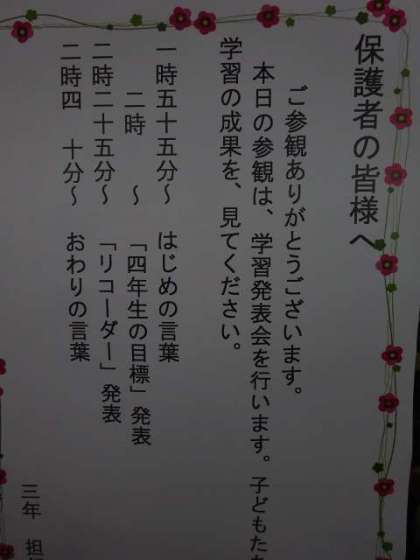 保護者の皆様へ
ご参観ありがとうございます。
本日の参観は、学習発表会を行います。子どもた
学習の成果を、見てください。
一時五十五分～ はじめの言葉
二時 ～ 「四年生の目標」発表
二時二十五分～ 「リコーダー」発表
二時四 十分～ おわりの言葉
三年 担